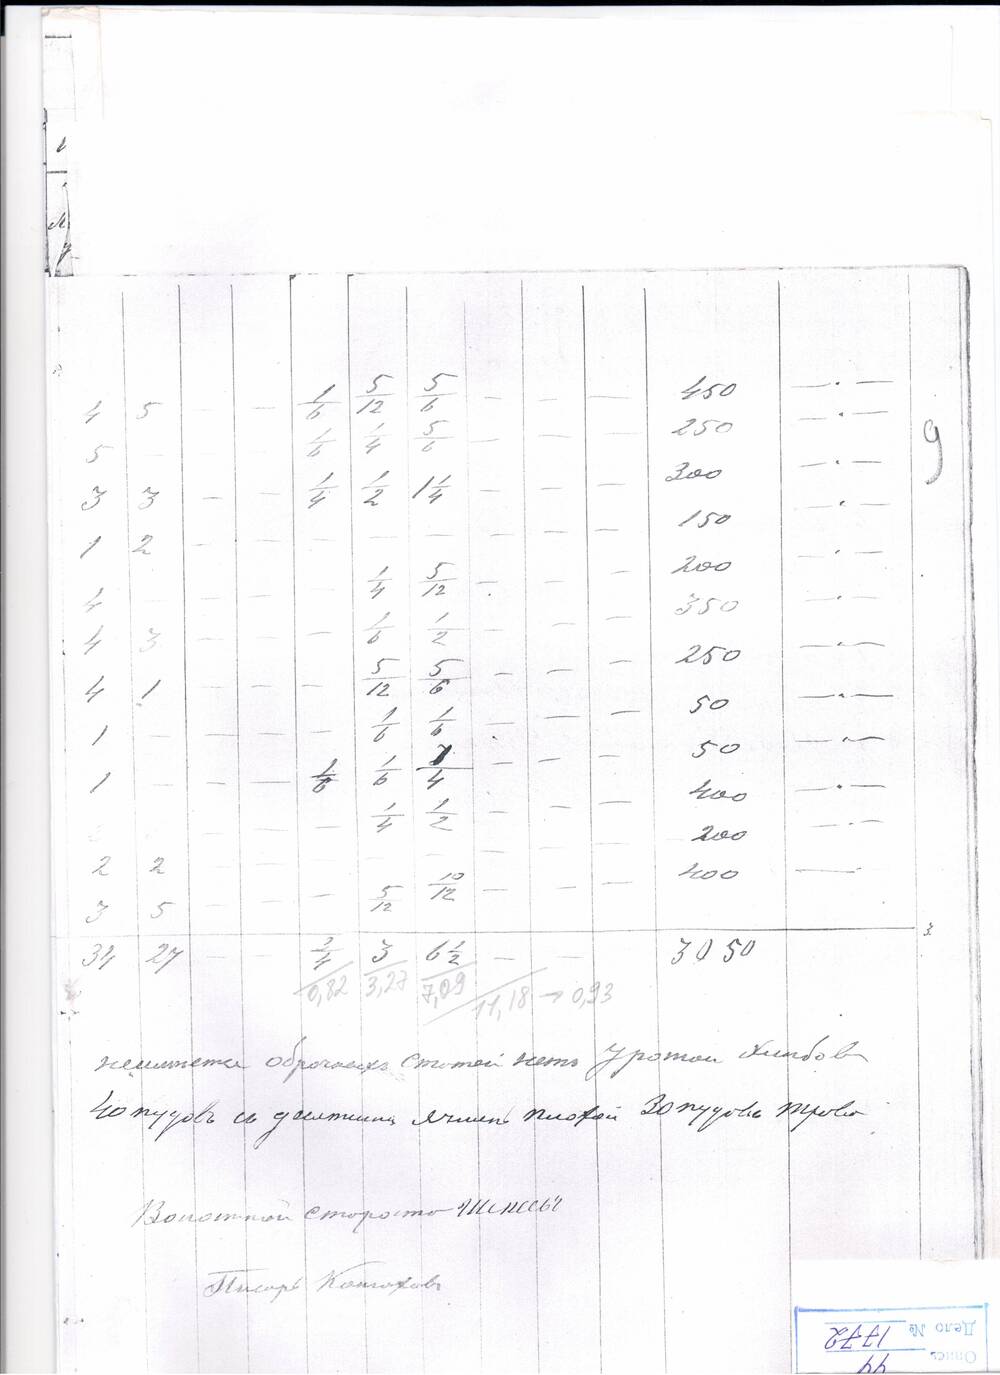 9
4 5 — — 1/6 5/12 5/6 — — — 450 — . —
5 1/6 1/4 5/6 — — — 250 — . —
3 3 — — 1/4 1/2 1 1/4 — — — 300 — . —
1 2 — — — — — — — — 150 — . —
4 — — — — 1/4 5/12 — — — 200 — . —
4 3 — — — 1/6 1/2 — — — 350 — . —
4 1 — — — 5/12 5/6 — — — 250 — . —
1 — — — — 1/6 1/6 — — — 50 — . —
1 — — 1/6 1/6 1/4 — — — 50 — . —
— 1/4 1/2 — — — 400 — . —
2 2 — — — — — — — — 200 — . —
3 5 — — — 5/12 10/12 — — — 400 —
3.
34 27 — — 3/4 3 6 1/2 — — 3050
0,82 3,27 7,09 11,18 → 0,93
оброчныхъ статей нетъ Урожай хлебовъ
40 пудовъ съ десятины Ячмень плохой 30 пудовъ трава
Волостной староста
Писарь
Опись 44
Дело № 1772